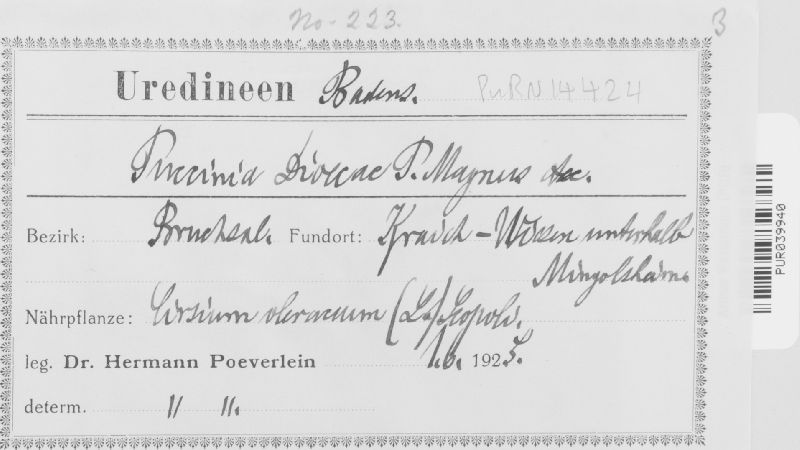 No. 223. 3
Uredineen Badens. PURN14424
Puccinia Dioicae P. Magnus
Bezirk: Bruchsal. Fundort: Kraich-Wiesen unterhalb
Mingolsheim.
Nährpflanze: Cirsium oleraceum (L.) Scopoli.
leg. Dr. Hermann Poeverlein 1.6. 192
determ. " ".
PUR039940